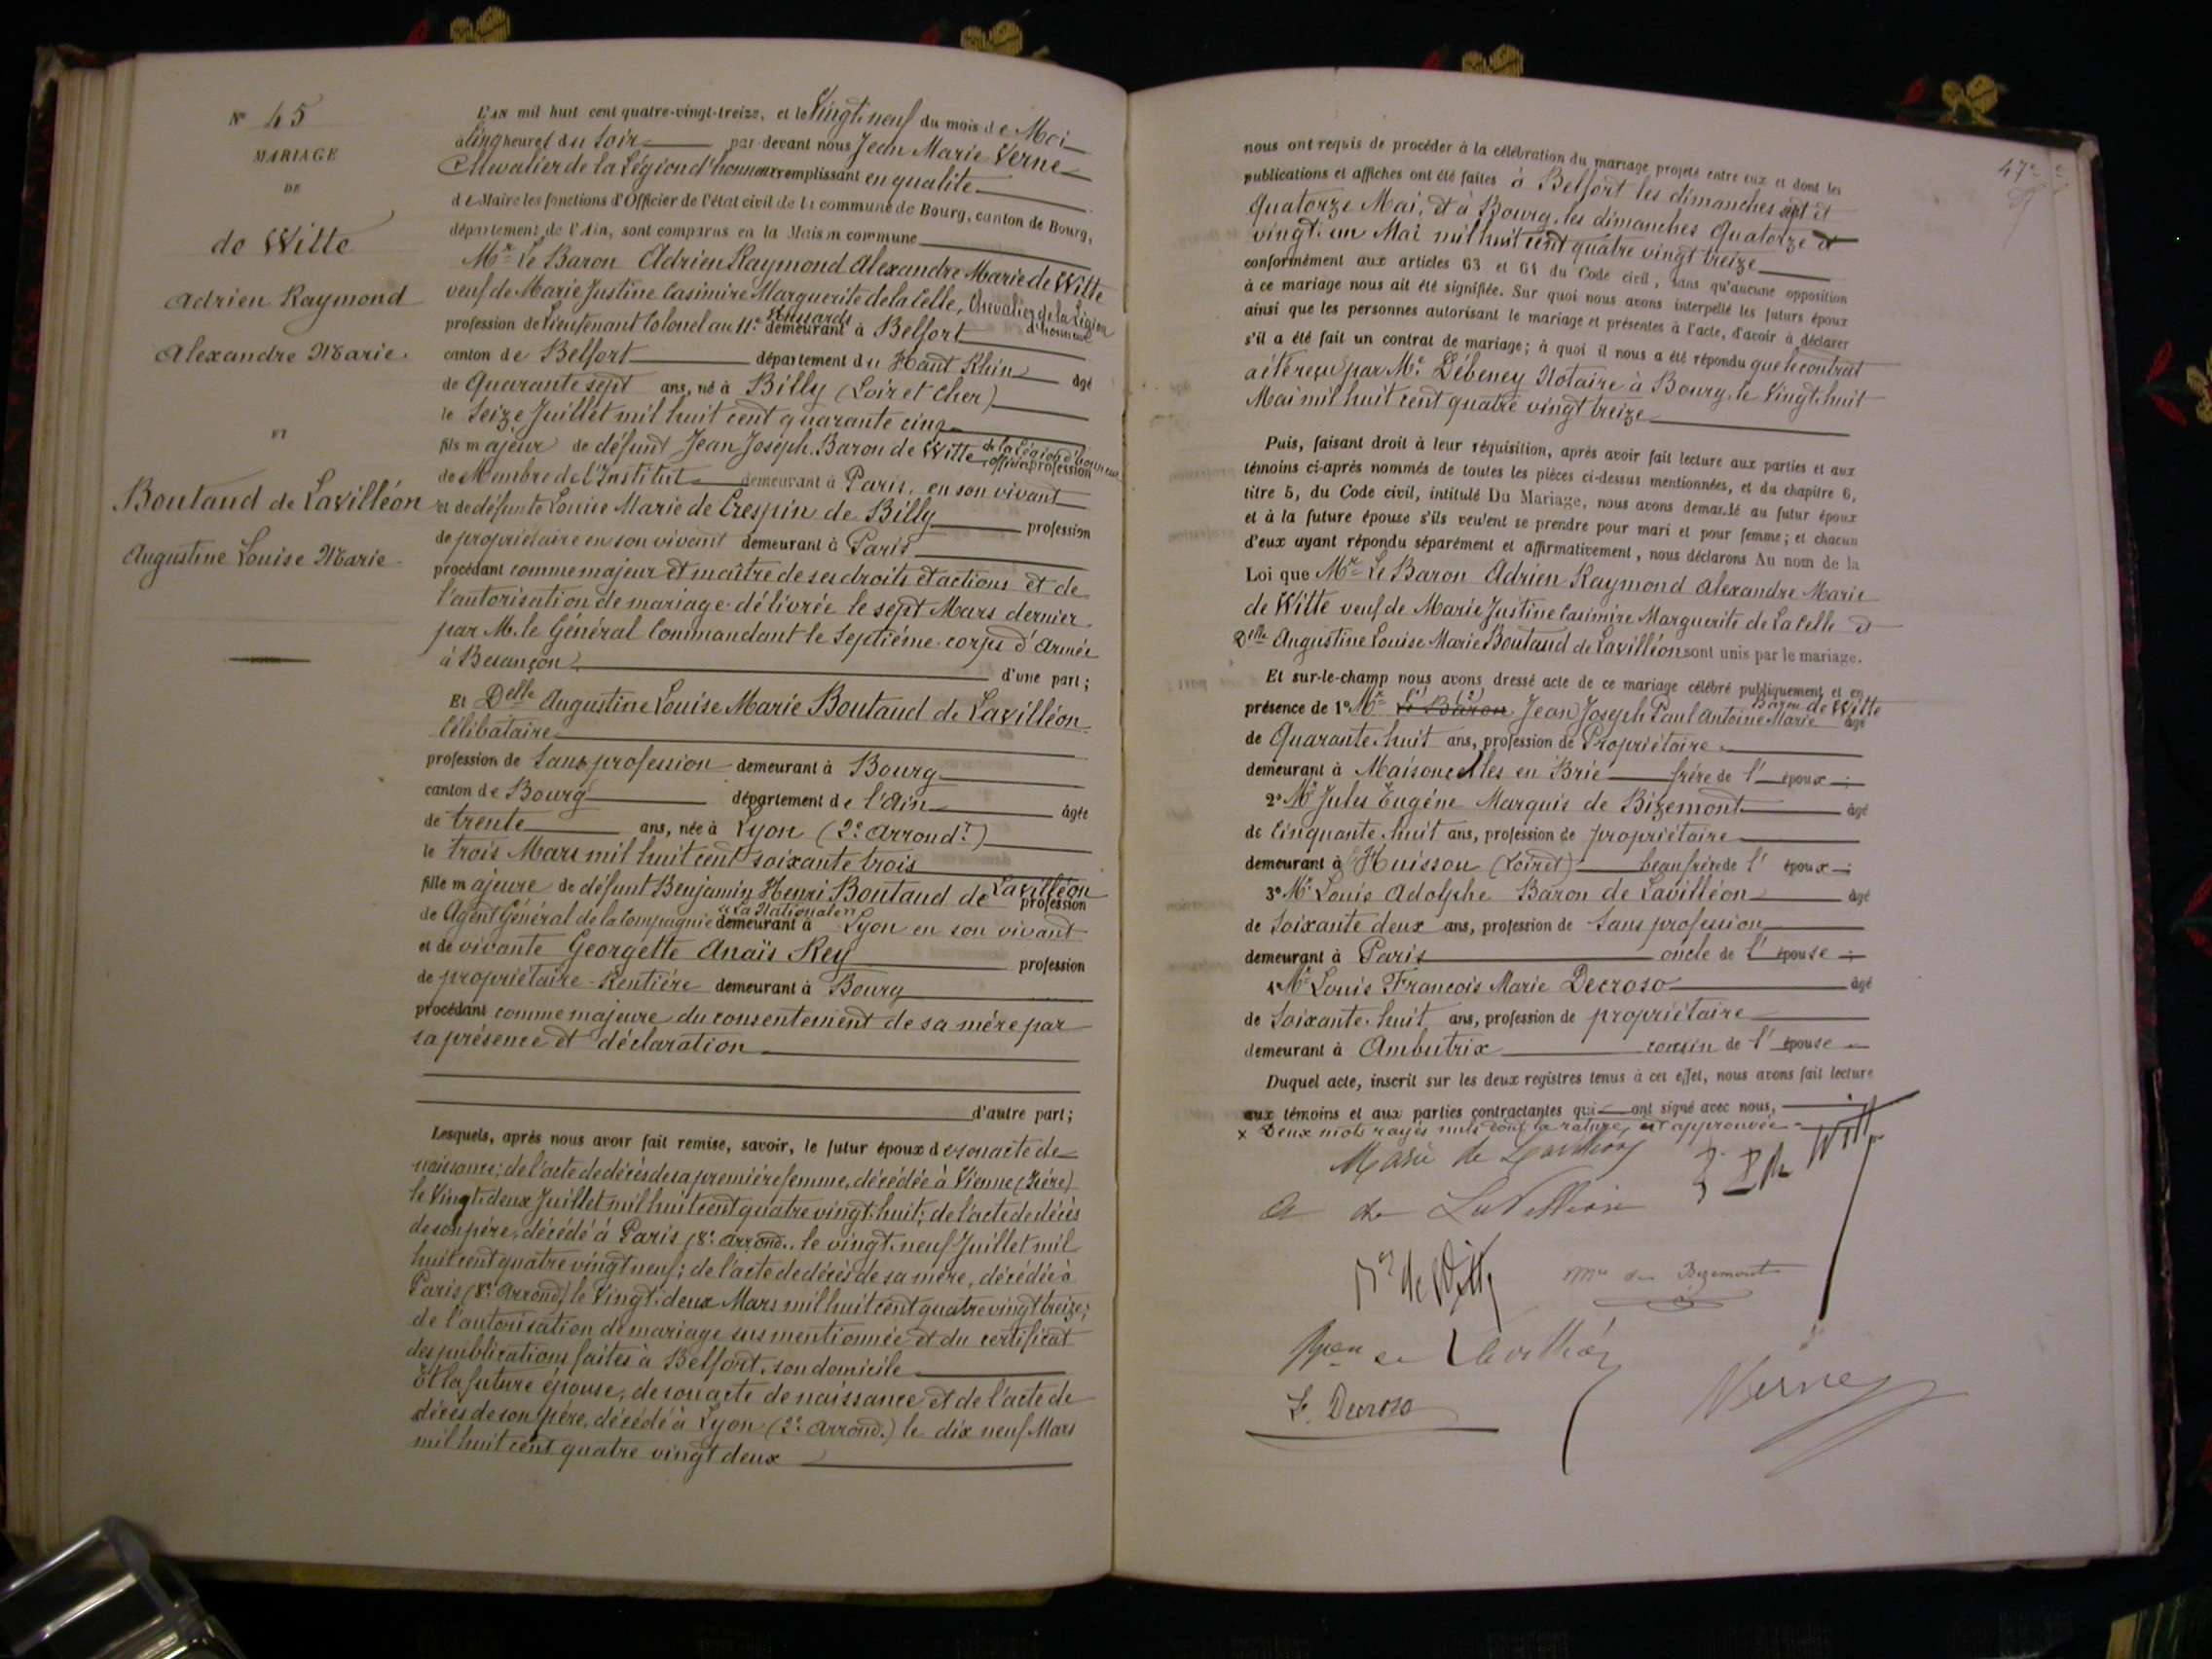 N° 45
MARIAGE
DE
de Witte
Adrien Raymond
Alexandre Marie.
ET
Boutaud de Lavilléon
Augustine Louise Marie.
L'AN mil huit cent quatre-vingt-treize, et le Vingt neuf du mois de Mai
à Cinq heures du Soir par-devant nous Jean Marie Verne
Chevalier de la Légion d'honneur remplissant en qualité
de Maire les fonctions d'Officier de l'état civil de la commune de Bourg, canton de Bourg,
département de l'Ain, sont comparus en la Maison commune
Mr Le Baron Adrien Raymond Alexandre Marie de Witte
veuf de Marie Justine Casimire Marguerite de la Celle, Chevalier de la Légion d'honneur
profession de Lieutenant Colonel au 11e hussards demeurant à Belfort
canton de Belfort département du Haut Rhin âgé
de Quarante sept ans, né à Billy (Loir et Cher)
le Seize Juillet mil huit cent quarante cinq
fils majeur de défunt Jean Joseph Baron de Witte, officier de la Légion d'honneur profession
de Membre de l'Institut demeurant à Paris, en son vivant
et de défunte Louise Marie de Crespin de Billy profession
de propriétaire en son vivant demeurant à Paris
procédant comme majeur et maître de ses droits et actions et de
l'autorisation de mariage délivrée le sept Mars dernier
par M. le Général Commandant le Septième corps d'Armée
à Besançon d'une part;
Et Delle Augustine Louise Marie Boutaud de Lavilléon
Célibataire
profession de Sans profession demeurant à Bourg
canton de Bourg département de l'Ain âgée
de trente ans, née à Lyon (2e Arrondt)
le trois Mars mil huit cent soixante trois
fille majeure de défunt Benjamin Henri Boutaud de Lavilléon profession
de Agent Général de la Compagnie "La Nationale" demeurant à Lyon en son vivant
et de vivante Georgette Anaïs Rey profession
de propriétaire-Rentière demeurant à Bourg
procédant comme majeure du consentement de sa mère par
sa présence et déclaration
d'autre part;
Lesquels, après nous avoir fait remise, savoir, le futur époux de son acte de
naissance; de l'acte de décès de sa première femme, décédée à Vienne (Isère)
le Vingt deux Juillet mil huit cent quatre vingt huit; de l'acte de décès
de son père, décédé à Paris (8e arrond., le vingt neuf Juillet mil
huit cent quatre vingt neuf; de l'acte de décès de sa mère, décédée à
Paris (8e Arrond) le Vingt deux Mars mil huit cent quatre vingt treize;
de l'autorisation de mariage susmentionnée et du certificat
des publications faites à Belfort, son domicile
Et la future épouse, de son acte de naissance et de l'acte de
décès de son père, décédé à Lyon (2e arrond.) le dix neuf Mars
mil huit cent quatre vingt deux
47e
nous ont requis de procéder à la célébration du mariage projeté entre eux et dont les
publications et affiches ont été faites à Belfort les dimanches sept et
Quatorze Mai, et à Bourg, les dimanches Quatorze et
vingt un Mai mil huit cent quatre vingt treize
conformément aux articles 63 et 64 du Code civil, sans qu'aucune opposition
à ce mariage nous ait été signifiée. Sur quoi nous avons interpellé les futurs époux
ainsi que les personnes autorisant le mariage et présentes à l'acte, d'avoir à déclarer
s'il a été fait un contrat de mariage; à quoi il nous a été répondu que le contrat
a été reçu par Me Débeney Notaire à Bourg, le Vingt huit
Mai mil huit cent quatre vingt treize
Puis, faisant droit à leur réquisition, après avoir fait lecture aux parties et aux
témoins ci-après nommés de toutes les pièces ci-dessus mentionnées, et du chapitre 6,
titre 5, du Code civil, intitulé Du Mariage, nous avons demandé au futur époux
et à la future épouse s'ils veulent se prendre pour mari et pour femme; et chacun
d'eux ayant répondu séparément et affirmativement, nous déclarons Au nom de la
Loi que Mr Le Baron Adrien Raymond Alexandre Marie
de Witte veuf de Marie Justine Casimire Marguerite de La Celle et
Delle Augustine Louise Marie Boutaud de Lavilléon sont unis par le mariage.
Et sur-le-champ nous avons dressé acte de ce mariage célébré publiquement et en
présence de 1° Mr Le Baron Jean Joseph Paul Antoine Marie Baron de Witte âgé
de Quarante-huit ans, profession de Propriétaire
demeurant à Maisoncelles en Brie frère de l'époux;
2° Mr Jules Eugène Marquis de Bizemont âgé
de Cinquante-huit ans, profession de propriétaire
demeurant à Huisson (Loiret) beau frère de l'époux;
3° Mr Louis Adolphe Baron de Lavilléon âgé
de Soixante deux ans, profession de Sans profession
demeurant à Paris oncle de l'épouse;
4° Mr Louis François Marie Decroso âgé
de Soixante-huit ans, profession de propriétaire
demeurant à Ambutrix cousin de l'épouse
Duquel acte, inscrit sur les deux registres tenus à cet effet, nous avons fait lecture
aux témoins et aux parties contractantes qui ont signé avec nous,
x Deux mots rayés nuls dont la rature est approuvée
Marie de Lavilléon
A de Lavilléon
Bon de Witte
Mis de Bizemont
Bon de Lavilléon
L. Decroso
Verne